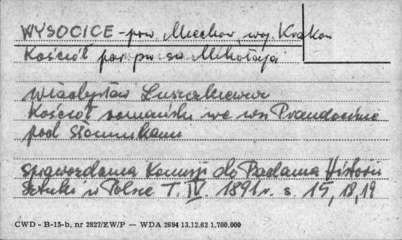 WYSOCICE - pow. Miechów woj. Kraków
Kościół par. pw. św. Mikołaja
Władysław Łuszczkiewicz
Kościół romański we wsi Prandocinie
pod Słomnikami
Sprawozdania Komisji do Badania Historii
Sztuki w Polsce T. IV. 1891 r. s. 15, 18, 19
CWD - B-15-b, nr 2827/ZW/P — WDA 2694 13.12.62 1.700.000